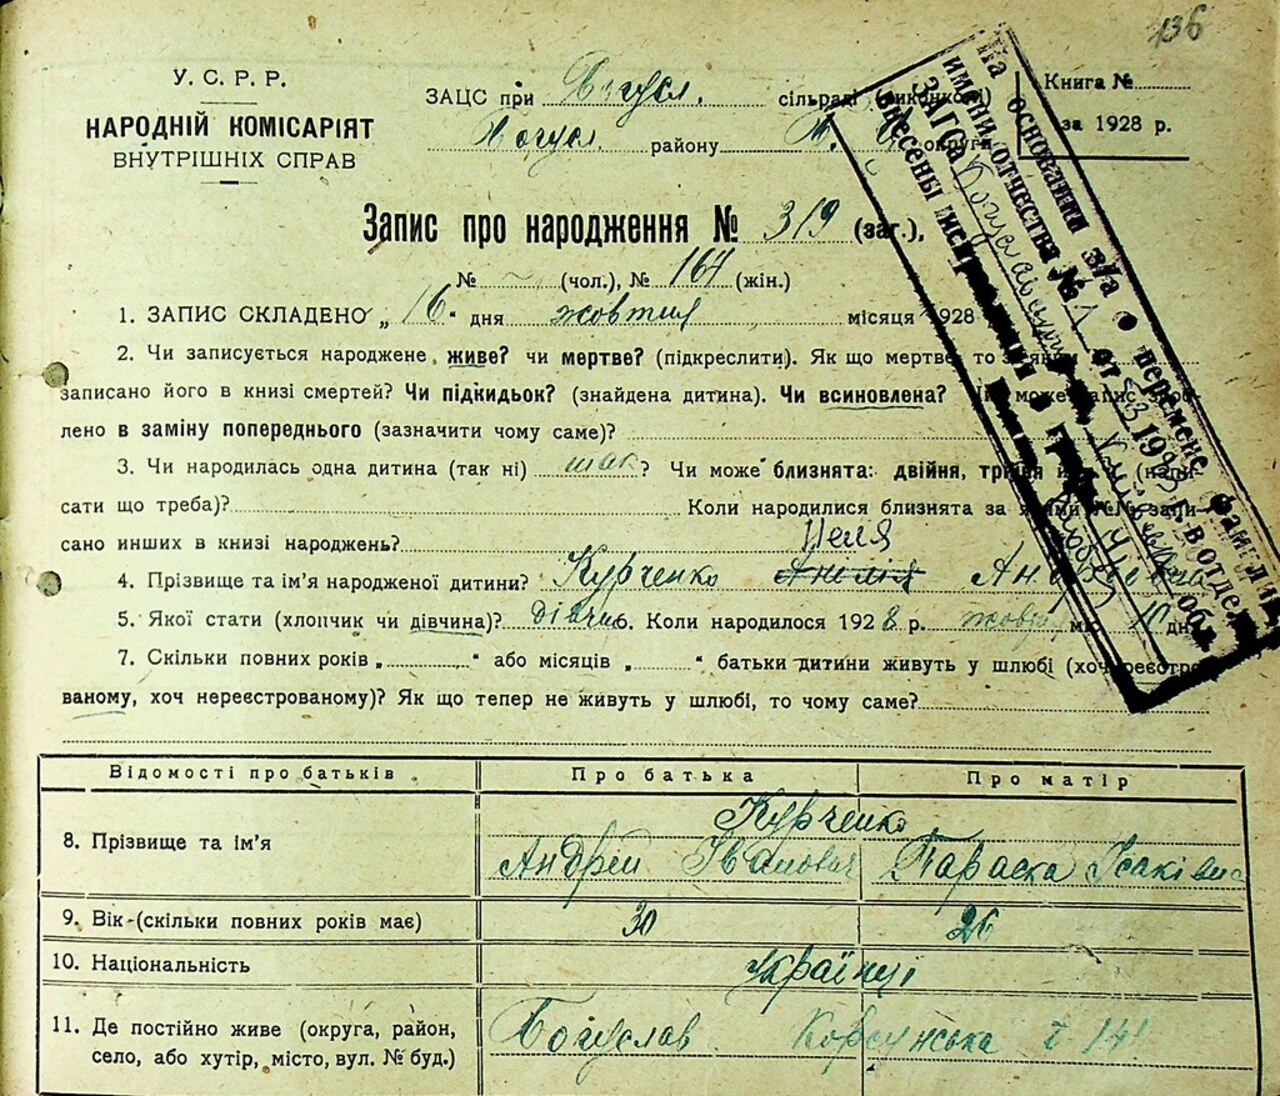 136
У. С. Р. Р.
НАРОДНІЙ КОМІСАРІЯТ
ВНУТРІШНІХ СПРАВ
ЗАЦС при Богусл. сільраді (виконкомі)
Богусл. району Б. Ц. округи
Книга №
за 1928 р.
Запис про народження № 319 (заг.),
№ – (чол.), № 164 (жін.)
1. ЗАПИС СКЛАДЕНО „16“ дня жовтня місяця 1928
2. Чи записується народжене, живе? чи мертве? (підкреслити). Як що мертве, то за яким
записано його в книзі смертей? Чи підкидьок? (знайдена дитина). Чи всиновлена? може запис
лено в заміну попереднього (зазначити чому саме)?
3. Чи народилась одна дитина (так ні) так? Чи може близнята: двійня, трійня
сати що треба)? Коли народилися близнята за якими №№ запи-
сано инших в книзі народжень?
Неля
4. Прізвище та ім’я народженої дитини? Курченко Анілія
5. Якої стати (хлопчик чи дівчина)? дівчи 6. Коли народилося 1928 р. жовтня міс. 10 дня
7. Скільки повних років „ “ або місяців „ “ батьки дитини живуть у шлюбі (хоч реєстро-
ваному, хоч нереєстрованому)? Як що тепер не живуть у шлюбі, то чому саме?
На основании з/а о перемене фамилии,
имени, отчества № 1 от 1953 г. в отделе
ЗАГСа Богуславского обл.
внесены исправления
Відомості про батьків
Про батька
Про матір
8. Прізвище та ім’я
Курченко
Андрій Іванович
Параска Ісаківна
9. Вік (скільки повних років має)
30
26
10. Національність
Українці
11. Де постійно живе (округа, район,
село, або хутір, місто, вул. № буд.)
Богуслав Корсунська